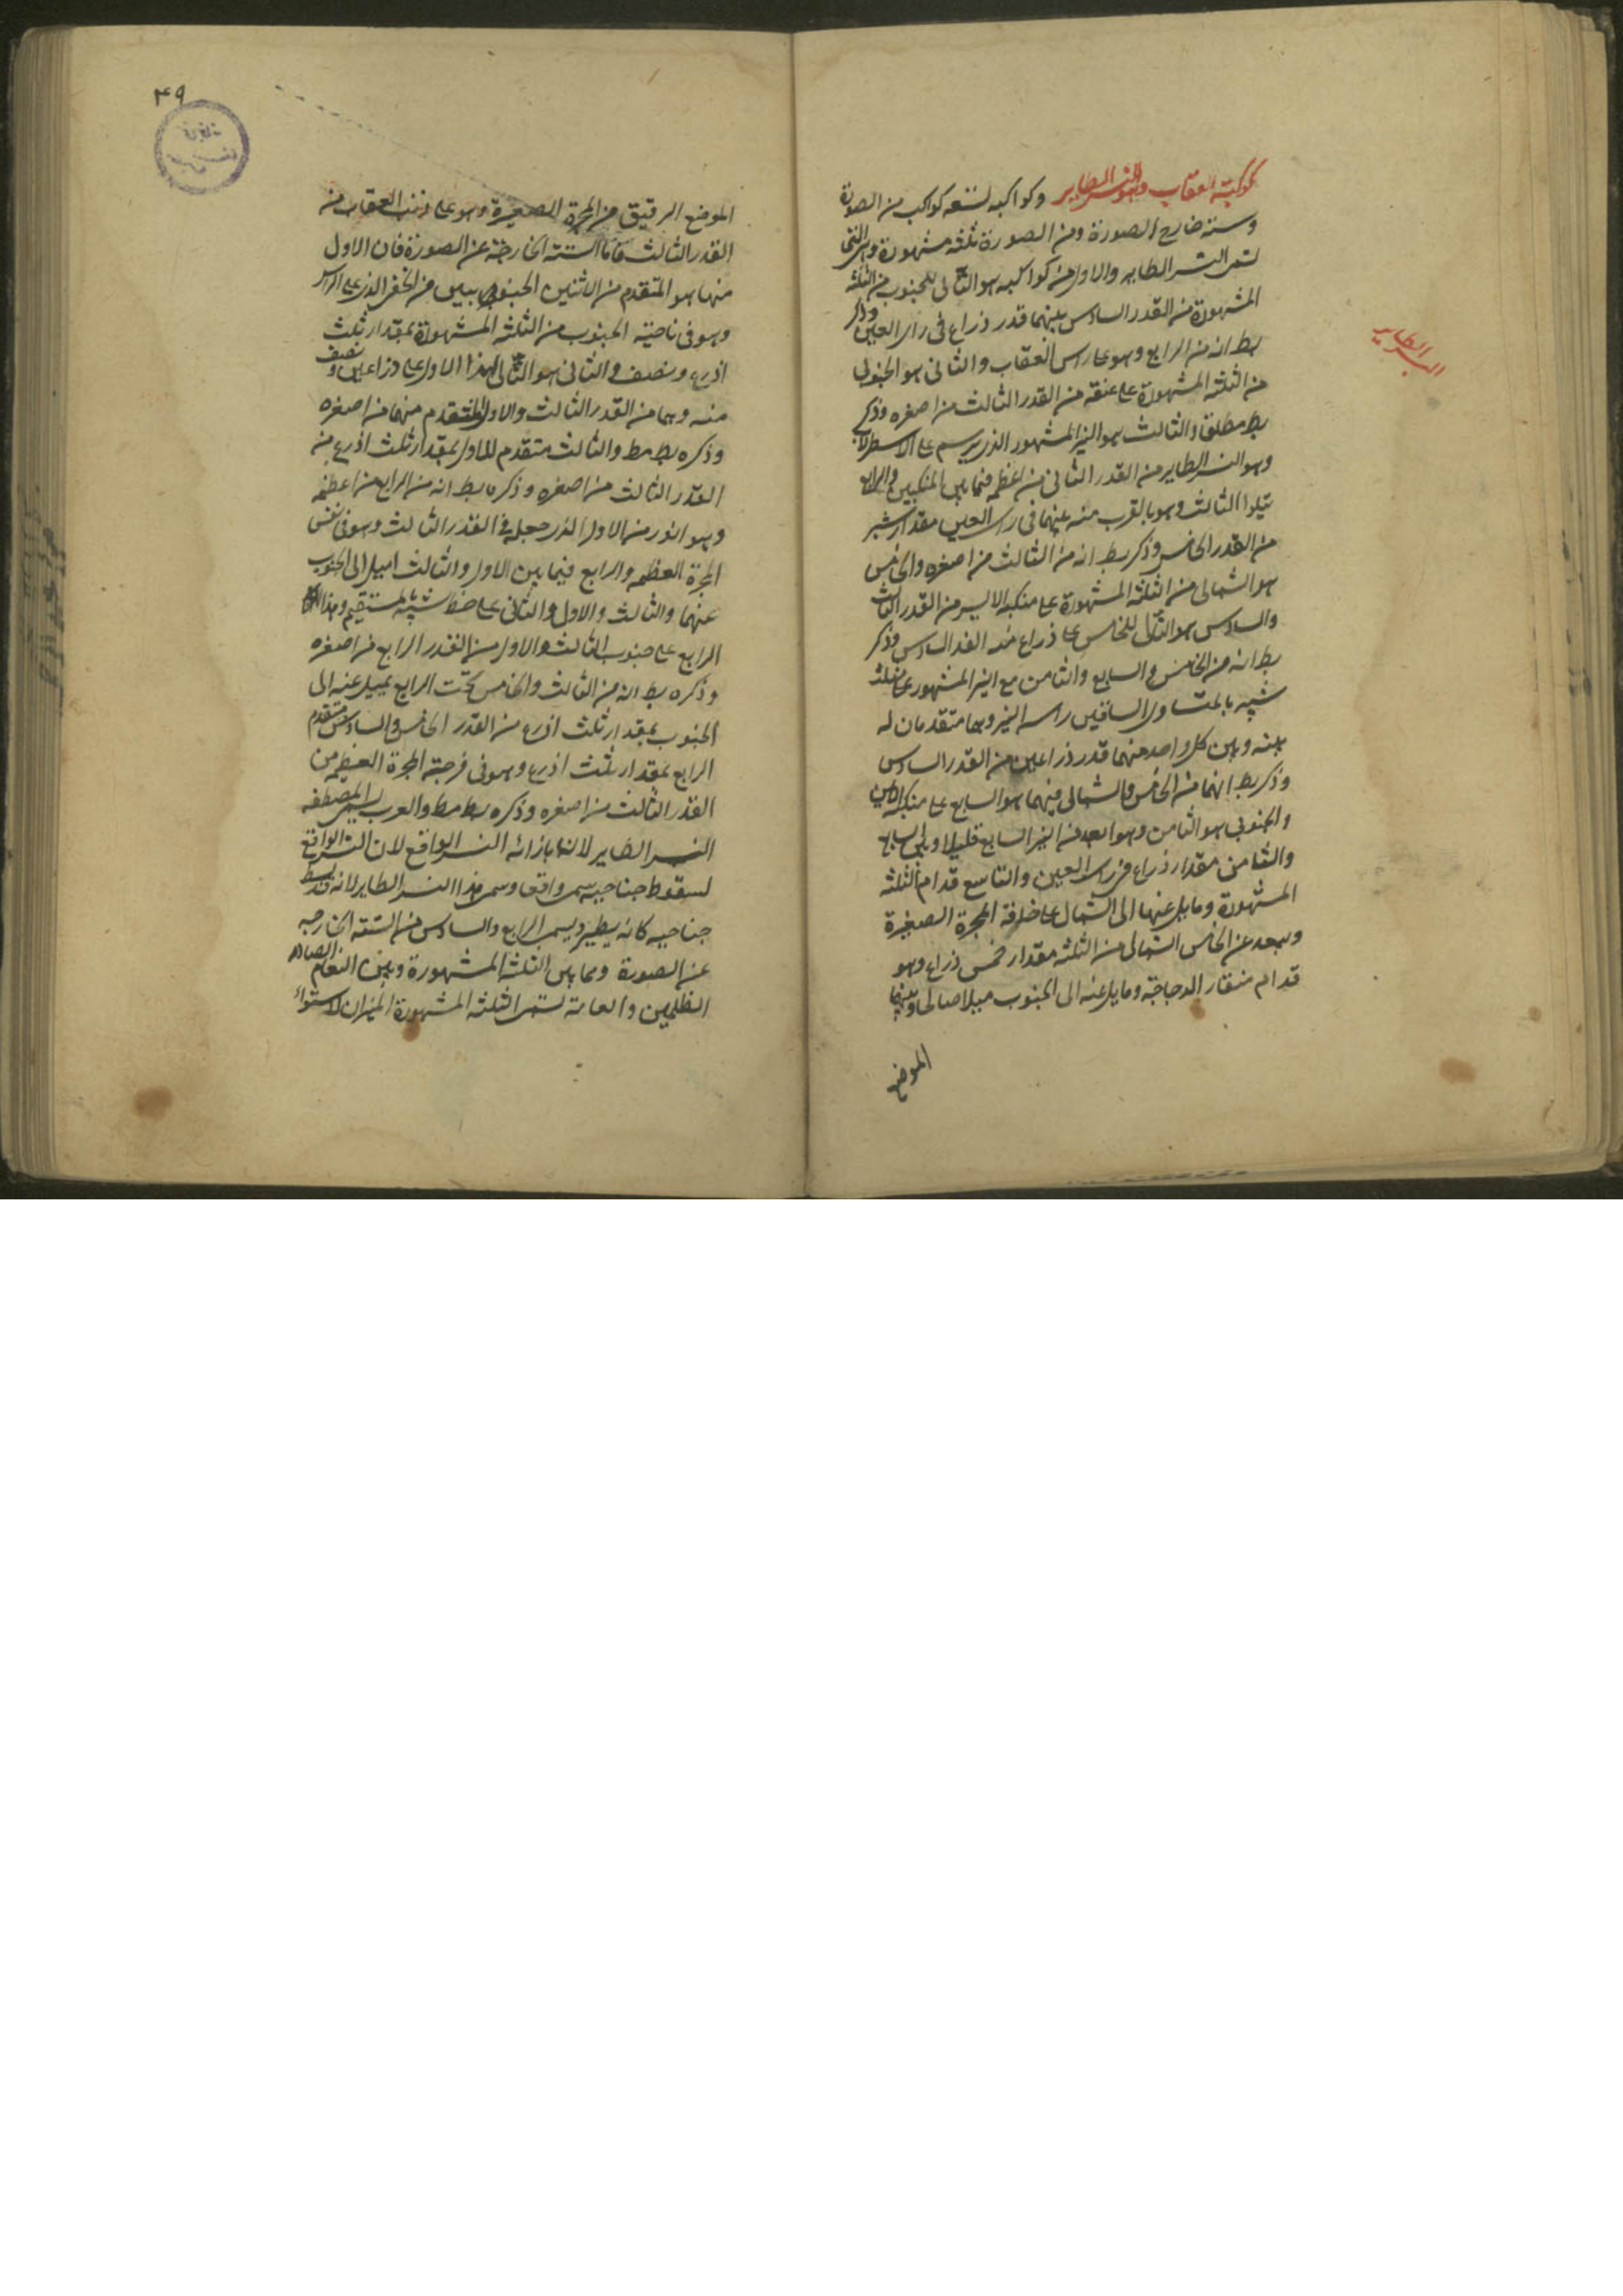 كوكبة العقاب وهو النسر الطاير وكواكبه تسعة كواكب من الصورة
وستة خارج الصورة ومن الصورة ثلثة مشهورة وهى التى
تسمى النسر الطاير والاول من كواكبه هو التالى للجنوب من الثلثة
المشهورة من القدر السادس بينهما قدر ذراع فى راى العين وذكر
بط انه من الرابع وهو على راس العقاب والثانى هو الجنوبى
من الثلثة المشهورة على عنقه من القدر الثالث من اصغره وذكر
بط مطلق والثالث هو النير المشهور الذى يرسم على الاسطرلاب
وهو النسر الطاير من القدر الثانى من اعظمه فيما بين المنكبين والرابع
يتلوا الثالث وهو بالقرب منه بينهما فى راى العين مقدار شبر
من القدر الخامس وذكر بط انه من الثالث من اصغره والخامس
هو الشمالى من الثلثة المشهورة على منكبه الايسر من القدر الثالث
والسادس هو التالى للخامس على ذراع منه القدر السادس وذكر
بط انه من الخامس والسابع والثامن مع النير المشهور على مثلث
شبيه بالمتساوى الساقين راسه النير وهما متقدمان له
بينه وبين كل واحد منهما قدر ذراعين من القدر السادس
وذكر بط انهما من الخامس والشمالى منهما هو السابع على منكبه الايمن
والجنوبى هو الثامن وهو ابعد من النير السابع قليلا وبين السابع
والثامن مقدار ذراع فى راى العين والتاسع قدام الثلثة
المشهورة ومايل عنها الى الشمال على حافة المجرة الصغيرة
وبعد عن الخامس الشمالى من الثلثة مقدار خمس ذراع وهو
قدام منقار الدجاجة ومايل عنه الى الجنوب ميلا صالحا وبينهما
الموضع
النسر الطاير
۴۹
الموضع الرقيق من المجرة الصغيرة وهو على ذنب العقاب من
القدر الثالث فاما الستة الخارجة عن الصورة فان الاول
منها هو المتقدم من الاثنين الجنوبيين من الذى على الراس
وهو فى ناحية الجنوب من الثلثة المشهورة بمقدار ثلث
اذرع ونصف والثانى هو التالى لهذا الاول على ذراعين ونصف
منه وهما من القدر الثالث والاول المتقدم منهما من اصغره
وذكره بط مط والثالث متقدم للاول بمقدار ثلث اذرع من
القدر الثالث من اصغره وذكره بط انه من الرابع من اعظمه
وهو انور من الاول الذى جعله فى القدر الثالث وهو فى نفس
المجرة العظيمه والرابع فيما بين الاول والثالث اميل الى الجنوب
عنهما والثالث والاول والثانى على خط شبيه مستقيم وهذا
الرابع على جنوب الثالث والاول من القدر الرابع من اصغره
وذكره بط انه من الثالث والخامس تحت الرابع يميل عنه الى
الجنوب بمقدار ثلث اذرع من القدر الخامس والسادس متقدم
الرابع بمقدار ثلث اذرع وهو فى فرجة المجرة العظيمه من
القدر الثالث من اصغره وذكره بط مط والعرب يسمى المصطفه
النسر الطاير لانها بازائه النسر الواقع لان النسر الواقع
لسقوط جناحيه سمى واقعا وسمى هذا النسر الطاير لانه قد بسط
جناحيه كانه يطير ويسمى الرابع والسادس من الستة الخارجه
عن الصورة وما بين الثلثة المشهورة وبين النعام الصادر
الظليمين والعامة تسمى الثلثة المشهورة الميزان لاستواء